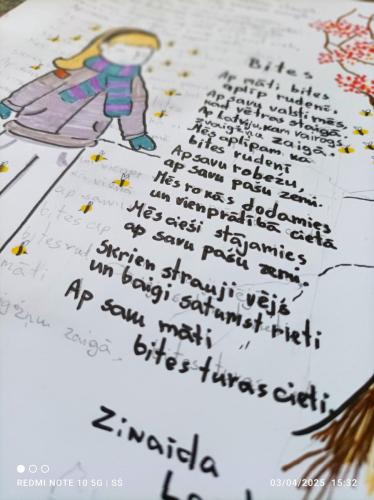 Bites
Ap māti bites
aplip rudenī,
Ap savu valsti mēs,
kad vētras staigā.
Ap Latviju, kam vairogs
zvaigžņu zaigā.
Mēs aplipam kā
bites rudenī
Ap savu robežu,
ap savu pašu zemi.
Mēs rokās dodamies
un vienprātībā cietā
Mēs cieši stājamies
ap savu pašu zemi.
Skrien strauji vējš
un baigi satumst rieti
Ap savu māti
bites turas cieti.
Zinaida
REDMI NOTE 10 5G | SŠ
03/04/2025 15:32